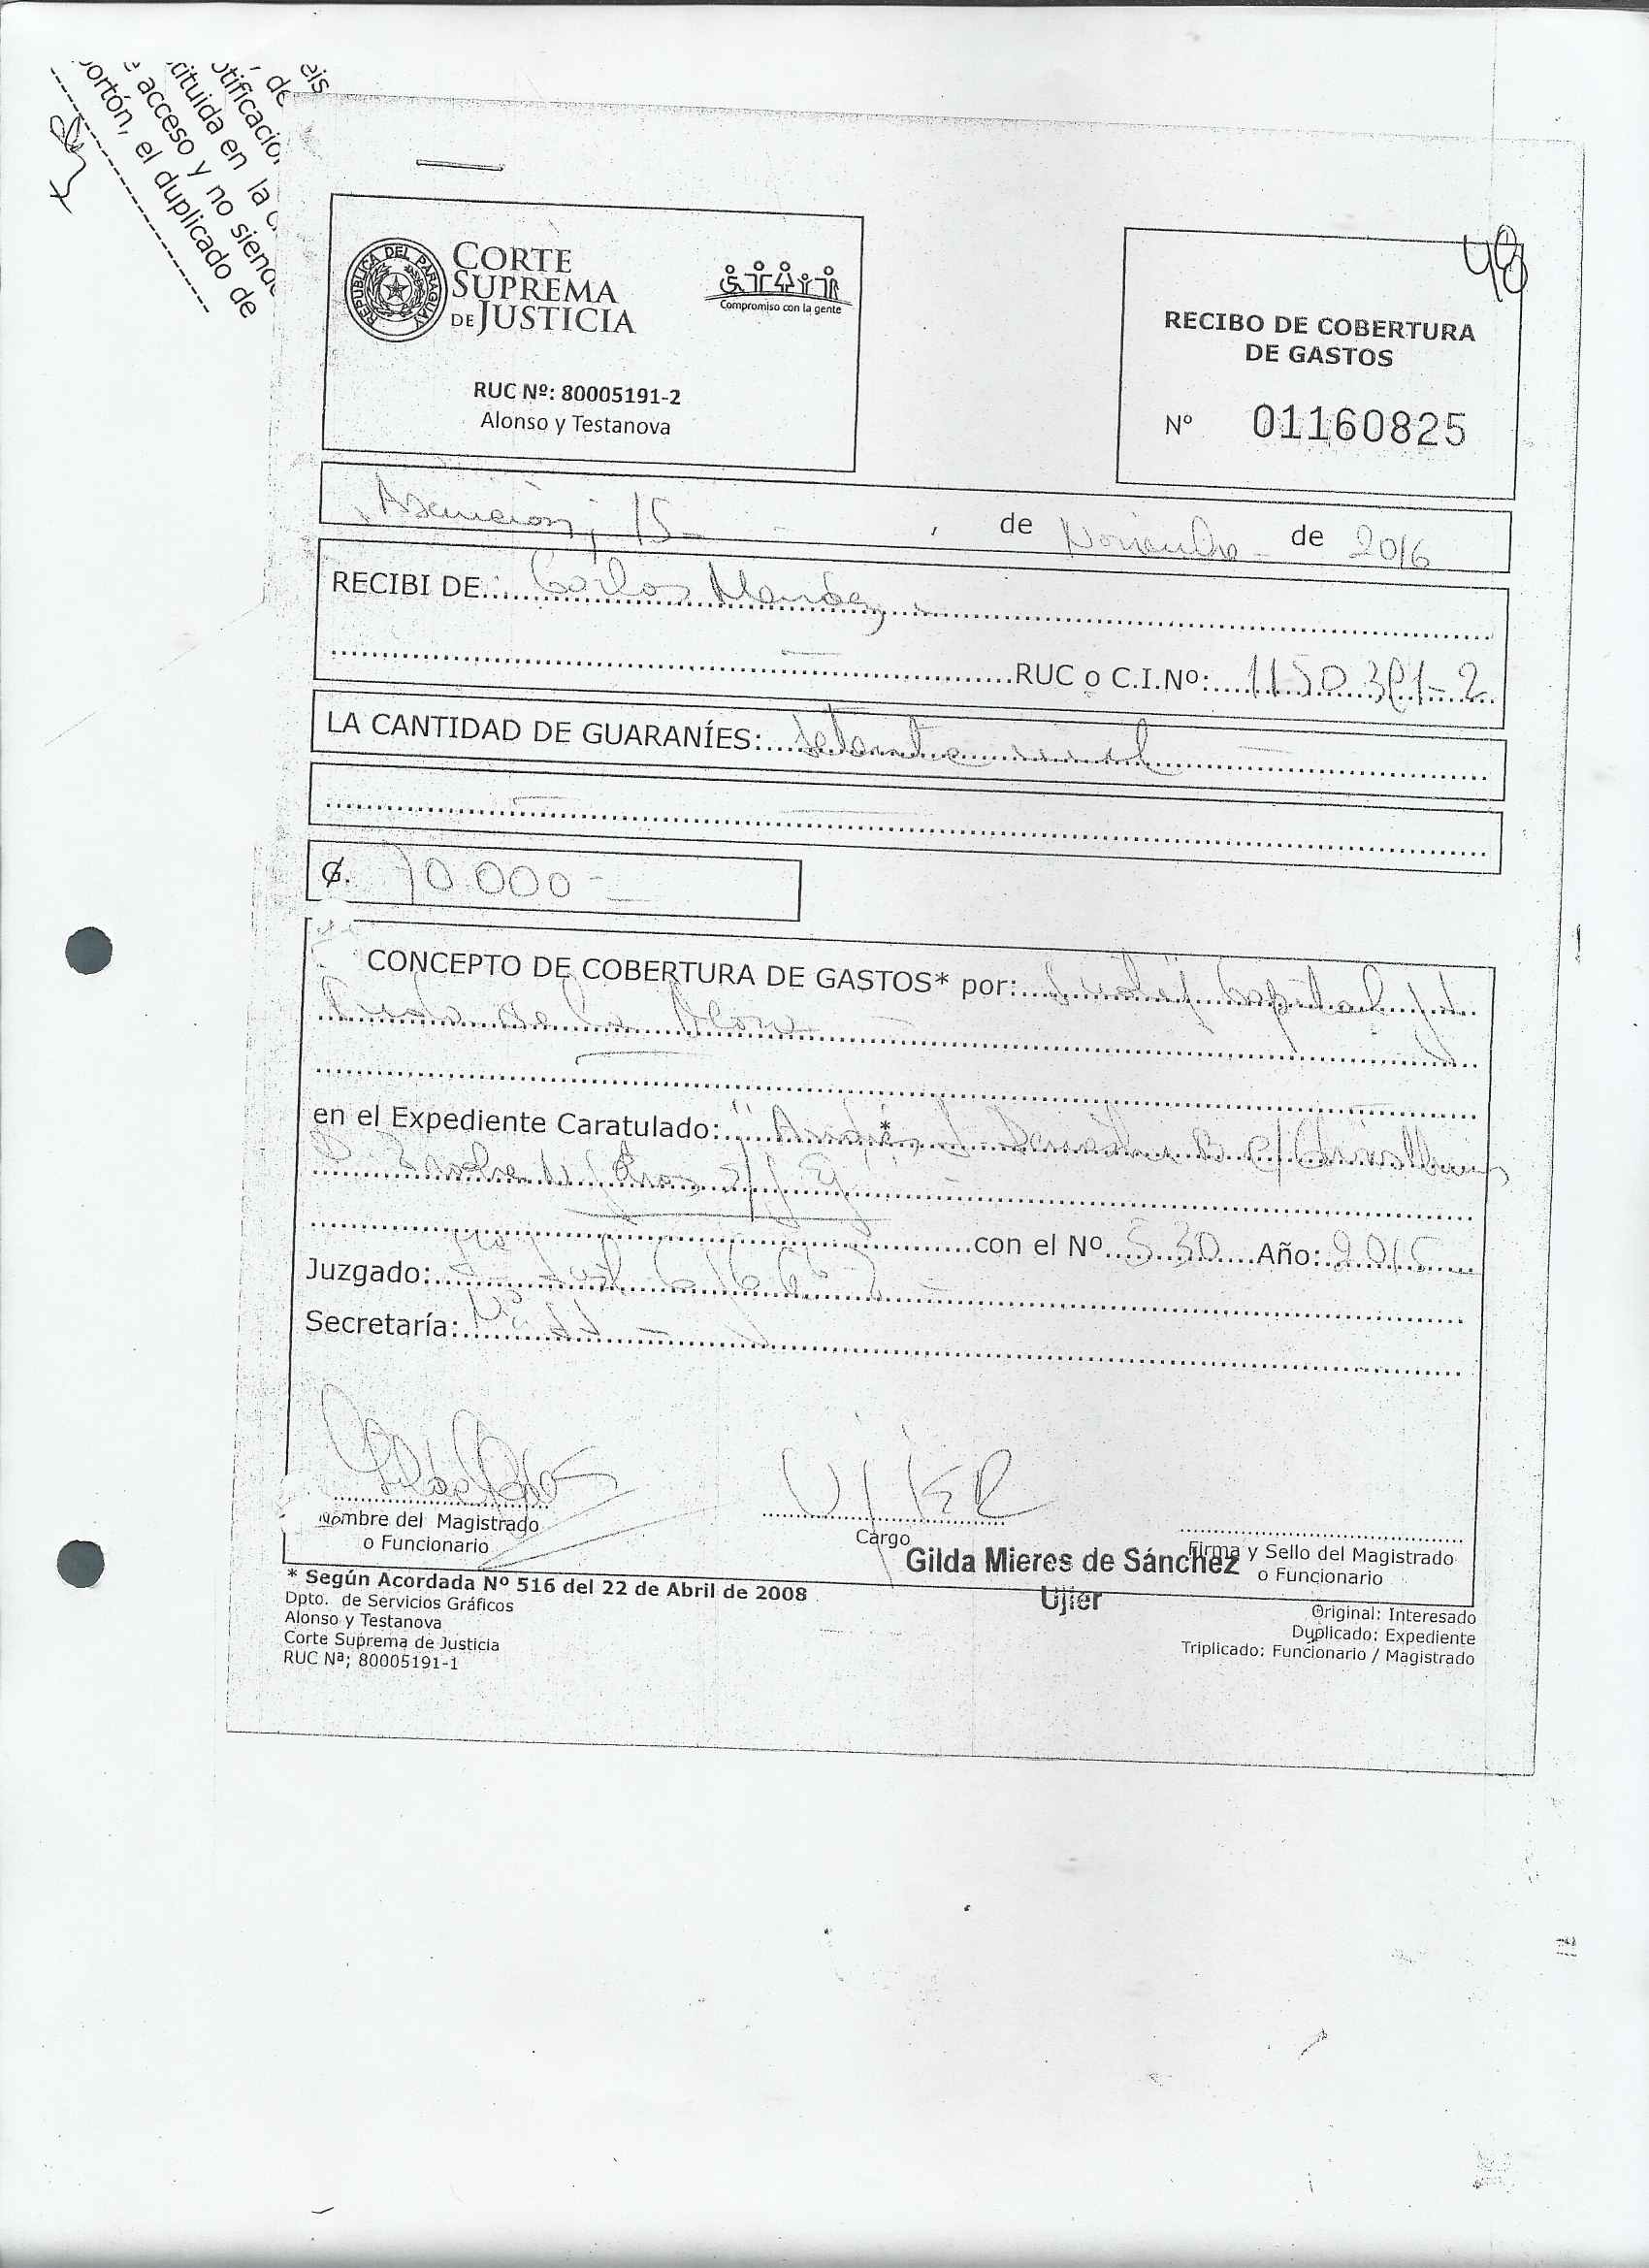 eis
, de
otificació
tituida en la
acceso y no siend
ortón, el duplicado de
48
REPUBLICA DEL PARAGUAY
CORTE
SUPREMA
DE JUSTICIA
Compromiso con la gente
RUC Nº: 80005191-2
Alonso y Testanova
RECIBO DE COBERTURA
DE GASTOS
Nº 01160825
Asunción, 15 , de Noviembre de 2016
RECIBI DE: Carlos
RUC o C.I.Nº: 1150391-2
LA CANTIDAD DE GUARANÍES: setenta mil
₲. 70.000
CONCEPTO DE COBERTURA DE GASTOS* por: Capital y
de la
en el Expediente Caratulado: *
con el Nº 530 Año: 2015
Juzgado:
Secretaría: Nº
UJIER
Nombre del Magistrado
o Funcionario
Cargo
Firma y Sello del Magistrado
o Funcionario
Gilda Mieres de Sánchez
Ujier
* Según Acordada Nº 516 del 22 de Abril de 2008
Dpto. de Servicios Gráficos
Alonso y Testanova
Corte Suprema de Justicia
RUC Nª; 80005191-1
Original: Interesado
Duplicado: Expediente
Triplicado: Funcionario / Magistrado